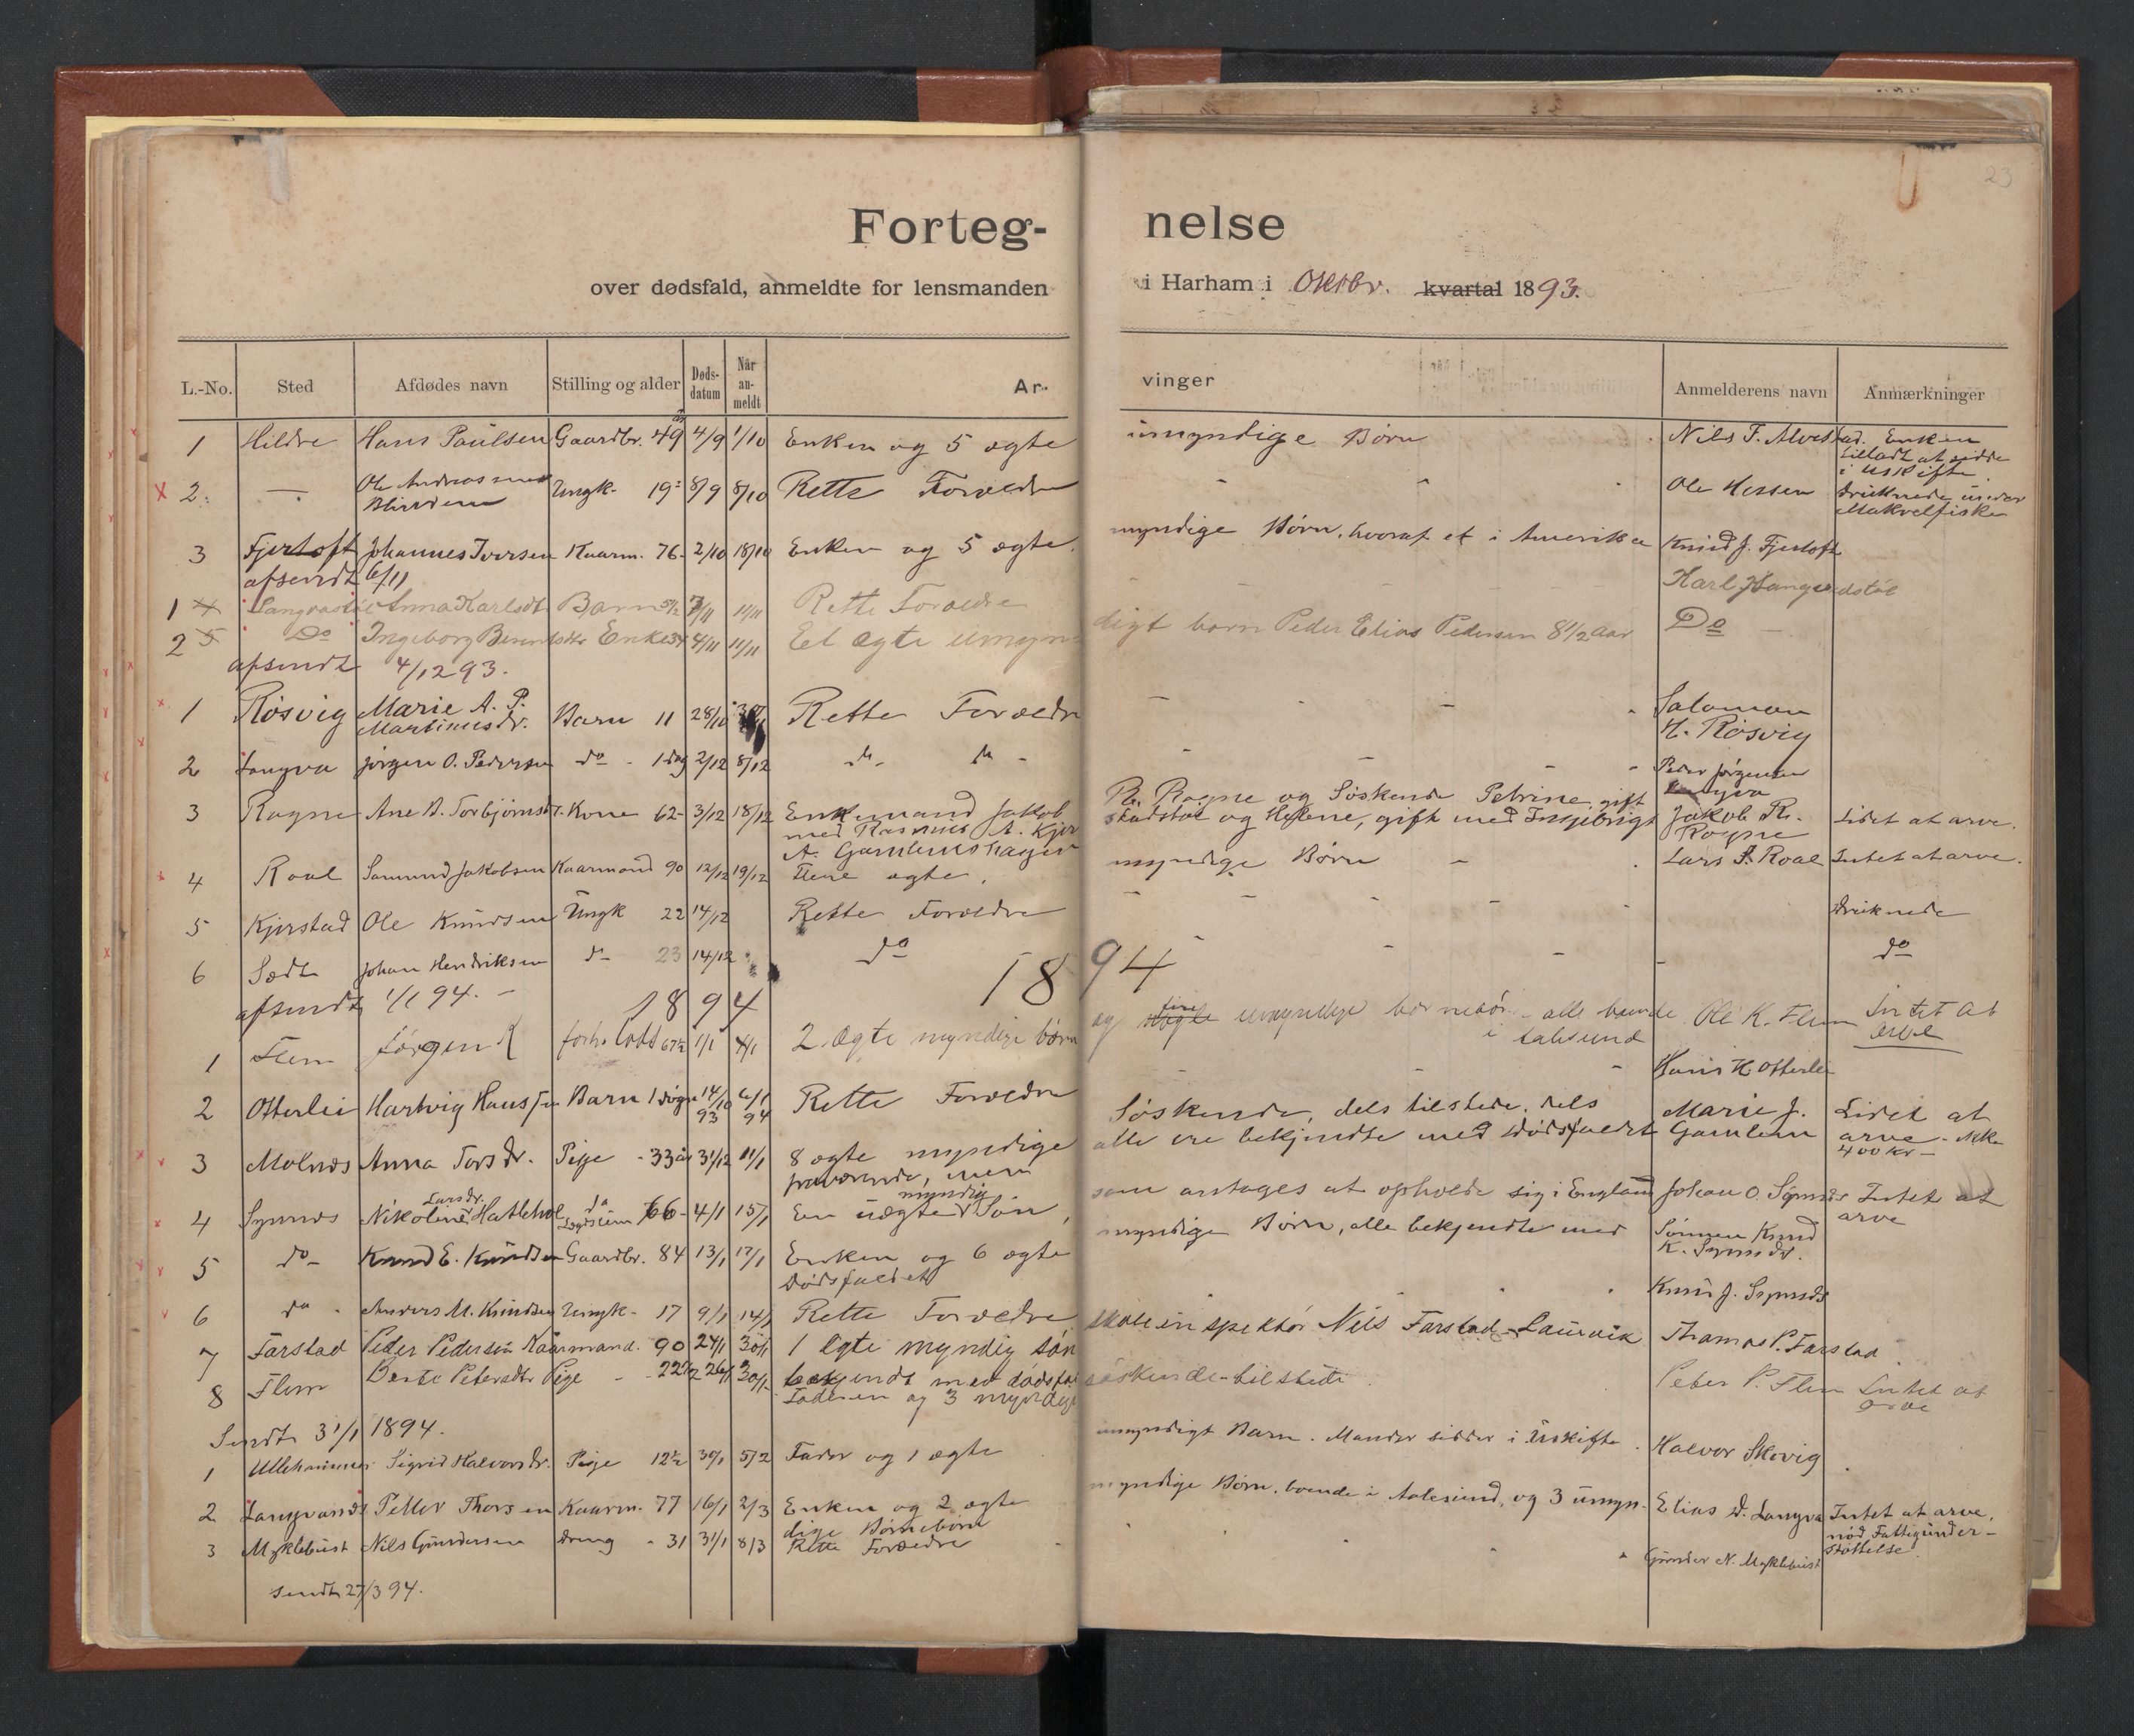 23
Forteg-nelse
over dødsfald, anmeldte for lensmanden i Harham i Oktbr. kvartal 1893.
L.-No. Sted Afdødes navn Stilling og alder Døds-datum Når an-meldt Ar-vinger Anmelderens navn Anmærkninger
1 Hildre Hans Paulsen Gaardbr. 49 år 4/9 1/10 Enken og 5 ægte umyndige Børn Nils T. Alvestad. Enken
tilladt at sidde
i uskifte
2. — Ole Andreas Ungk. 19 8/9 8/10 Rette Forældre Ole Hessen druknede under
Makrelfiske
3 Fjertoft Johannes Iversen Kaarm. 76 2/10 18/10 Enken og 5 ægte myndige Børn, hvoraf et i Amerika Knud J. Fjertoft
afsendt 6/11
1 4 Anna Karlsdt Barn 5/12 7/11 11/11 Rette Forældre Karl
2 5 Do Ingeborg Enke 34 4/11 11/11 Et ægte umyndigt barn Peder Elias Pedersen 8 1/2 aar Do
afsendt 4/12 93.
1 Røsvig Marie A. P. Martinusdr. Barn 11 28/10 Rette Forældre Salomon
H. Røsvig
2 Longva Jørgen O. Pedersen do 1 dag 2/12 8/12 Peder Jørgensen
Longva
3 Rogne Ane B. Torbjørnsdt. Kone 62 3/12 18/12 Enkemand Jakob Rs. Rogne og Søskende Petrine, gift
med Rasmus A. Kjerstadstøl og Helene, gift med Ingebrigt Jakob Rs. Rogne Lidet at arve.
A. Gamlemshaugen
4 Roal Samund Jakobsen Kaarmand 90 12/12 19/12 Flere ægte myndige Børn Lars S. Roal Intet at arve.
5 Kjerstad Ole Knudsen Ungk 22 14/12 Rette Forældre druknede
6 Sædt Johan Hendriksen do 23 14/12 do do
afsendt 1/1 94. 1894 1894
1 Flem Jørgen K forh. 67 1/2 1/1 4/1 2 Ægte myndige børn og fire umyndige børnebørn alle boende Ole K. Flem Intet at
i Aalesund arve
2 Otterlei Hartvig Hansen Barn 1 døgn 14/10 93 6/1 94 Rette Forældre Hans H Otterlei
3 Molnæs Anna Torsdr. Pige 33 år 31/12 11/1 8 ægte myndige Søskende, dels tilstede, dels Marie J. Lidet at
fraværende, men alle ere bekjendte med Dødsfaldet Gamlem arve - 
400 kr —
4 Synnæs Nikoline Larsdr. Hatlehol 66 4/1 15/1 En uægte myndig Søn, som antages at opholde sig i England Johan O. Synnæs Intet at
arve
5 do Knud E. Knudsen Gaardbr. 84 13/1 17/1 Enken og 6 ægte myndige Børn, alle bekjendte med Sønnen Knud
Dødsfaldet K. Synnæs.
6 do Anders M. Knudsen Ungk. 17 9/1 14/1 Rette Forældre Knud J. Synnæs
7 Farstad Peder Pedersen Kaarmand. 90 24/1 30/1 1 Ægte myndig søn skoleinspektør Nils Farstad - Laurvik Thomas P. Farstad
bekjendt med dødsfa
8 Flem Berte Petersdtr Pige 22 1/2 26/1 30/1 Faderen og 3 myndige søskende - tilstede Peter P. Flem Intet at
arve
Sendt 31/1 1894.
1 Ullahammer Sigrid Halvorsdr. Pige 12 1/2 30/1 5/2 Fader og 1 ægte umyndigt Barn. Manden sidder i Uskifte. Halvor Skovig
2 Longvanæs Petter Thorsen Kaarm. 77 16/1 2/3 Enken og 2 ægte myndige Børn, boende i Aalesund, og 3 umyn- Elias D. Longva Intet at arve,
dige Børnebørn nød Fattigunder-
støttelse
3 Myklebust Nils Gundersen Dreng 31 31/1 8/3 Rette Forældre Gunder N. Myklebust
Sendt 27/3 94.